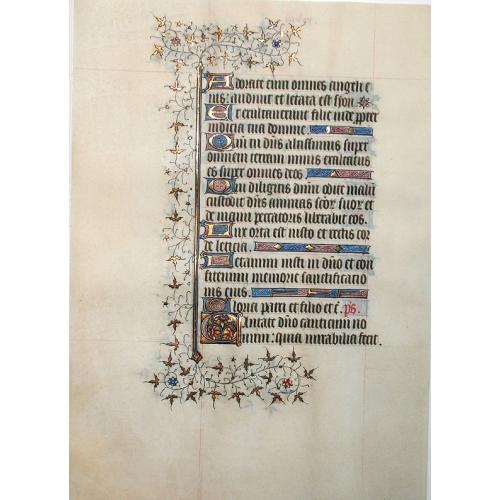 Adorate eum omnes angeli e
ius: audiuit et letata est syon
Et exultauerunt filie iude ppter
iudicia tua domine
Qm tu dns altissimus super
omnem terram nimis exaltatus
es super omnes deos
Qui diligitis dnm odite malu
custodit dns animas scor suor et
de manu peccatoris liberabit eos.
Lux orta est iusto et rectis cor
de leticia.
Letamini iusti in dno et con
fitemini memorie sanctificatio
nis eius.
Gloria patri et filio et c. ps.
Cantate dno canticum no
uum: quia mirabilia fecit.